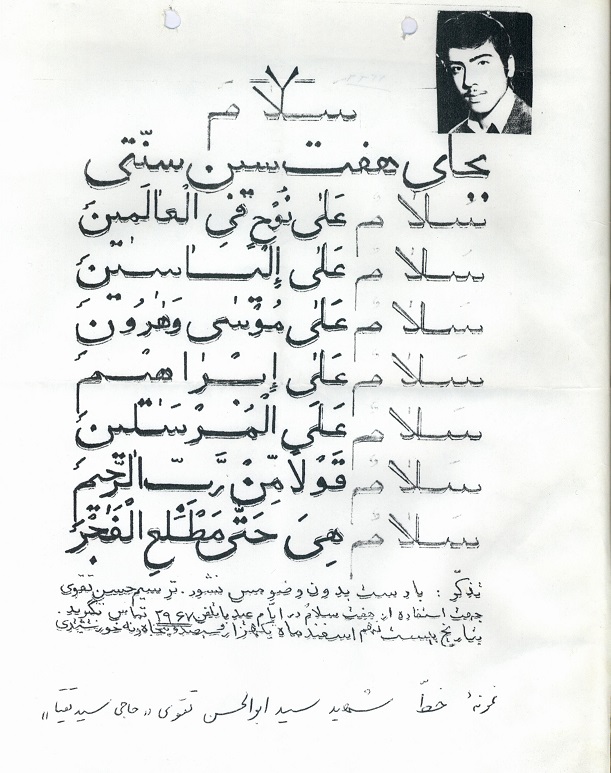 ۷
سلام
بجای هفت سین سنّتی
سَلامٌ عَلٰی نُوْحٍ فِی الْعالَمینَ
سَلامٌ عَلٰی إِلْیاسینَ
سَلامٌ عَلٰی مُوْسٰی وَهٰرُونَ
سَلامٌ عَلٰی إِبْراهیمَ
سَلامٌ عَلَی الْمُرْسَلینَ
سَلامٌ قَوْلاً مِّنْ رَّبٍّ الرَّحیمِ
سَلامٌ هِیَ حَتّٰی مَطْلَعِ الْفَجْرِ
تذکّر : با دست بدون وضو مس نشود . ترسیم حسن تقوی
جهت استفاده از هفت سلام در ایام عید با تلفن ۲۹۶۷ تماس بگیرید .
بتاریخ بیست نهم اسفند ماه یکهزار و سیصد و پنجاه و نه خورشیدی
نمونهٔ خطّ شهید سید ابوالحسن تقوی «حاجی سید تقیا»